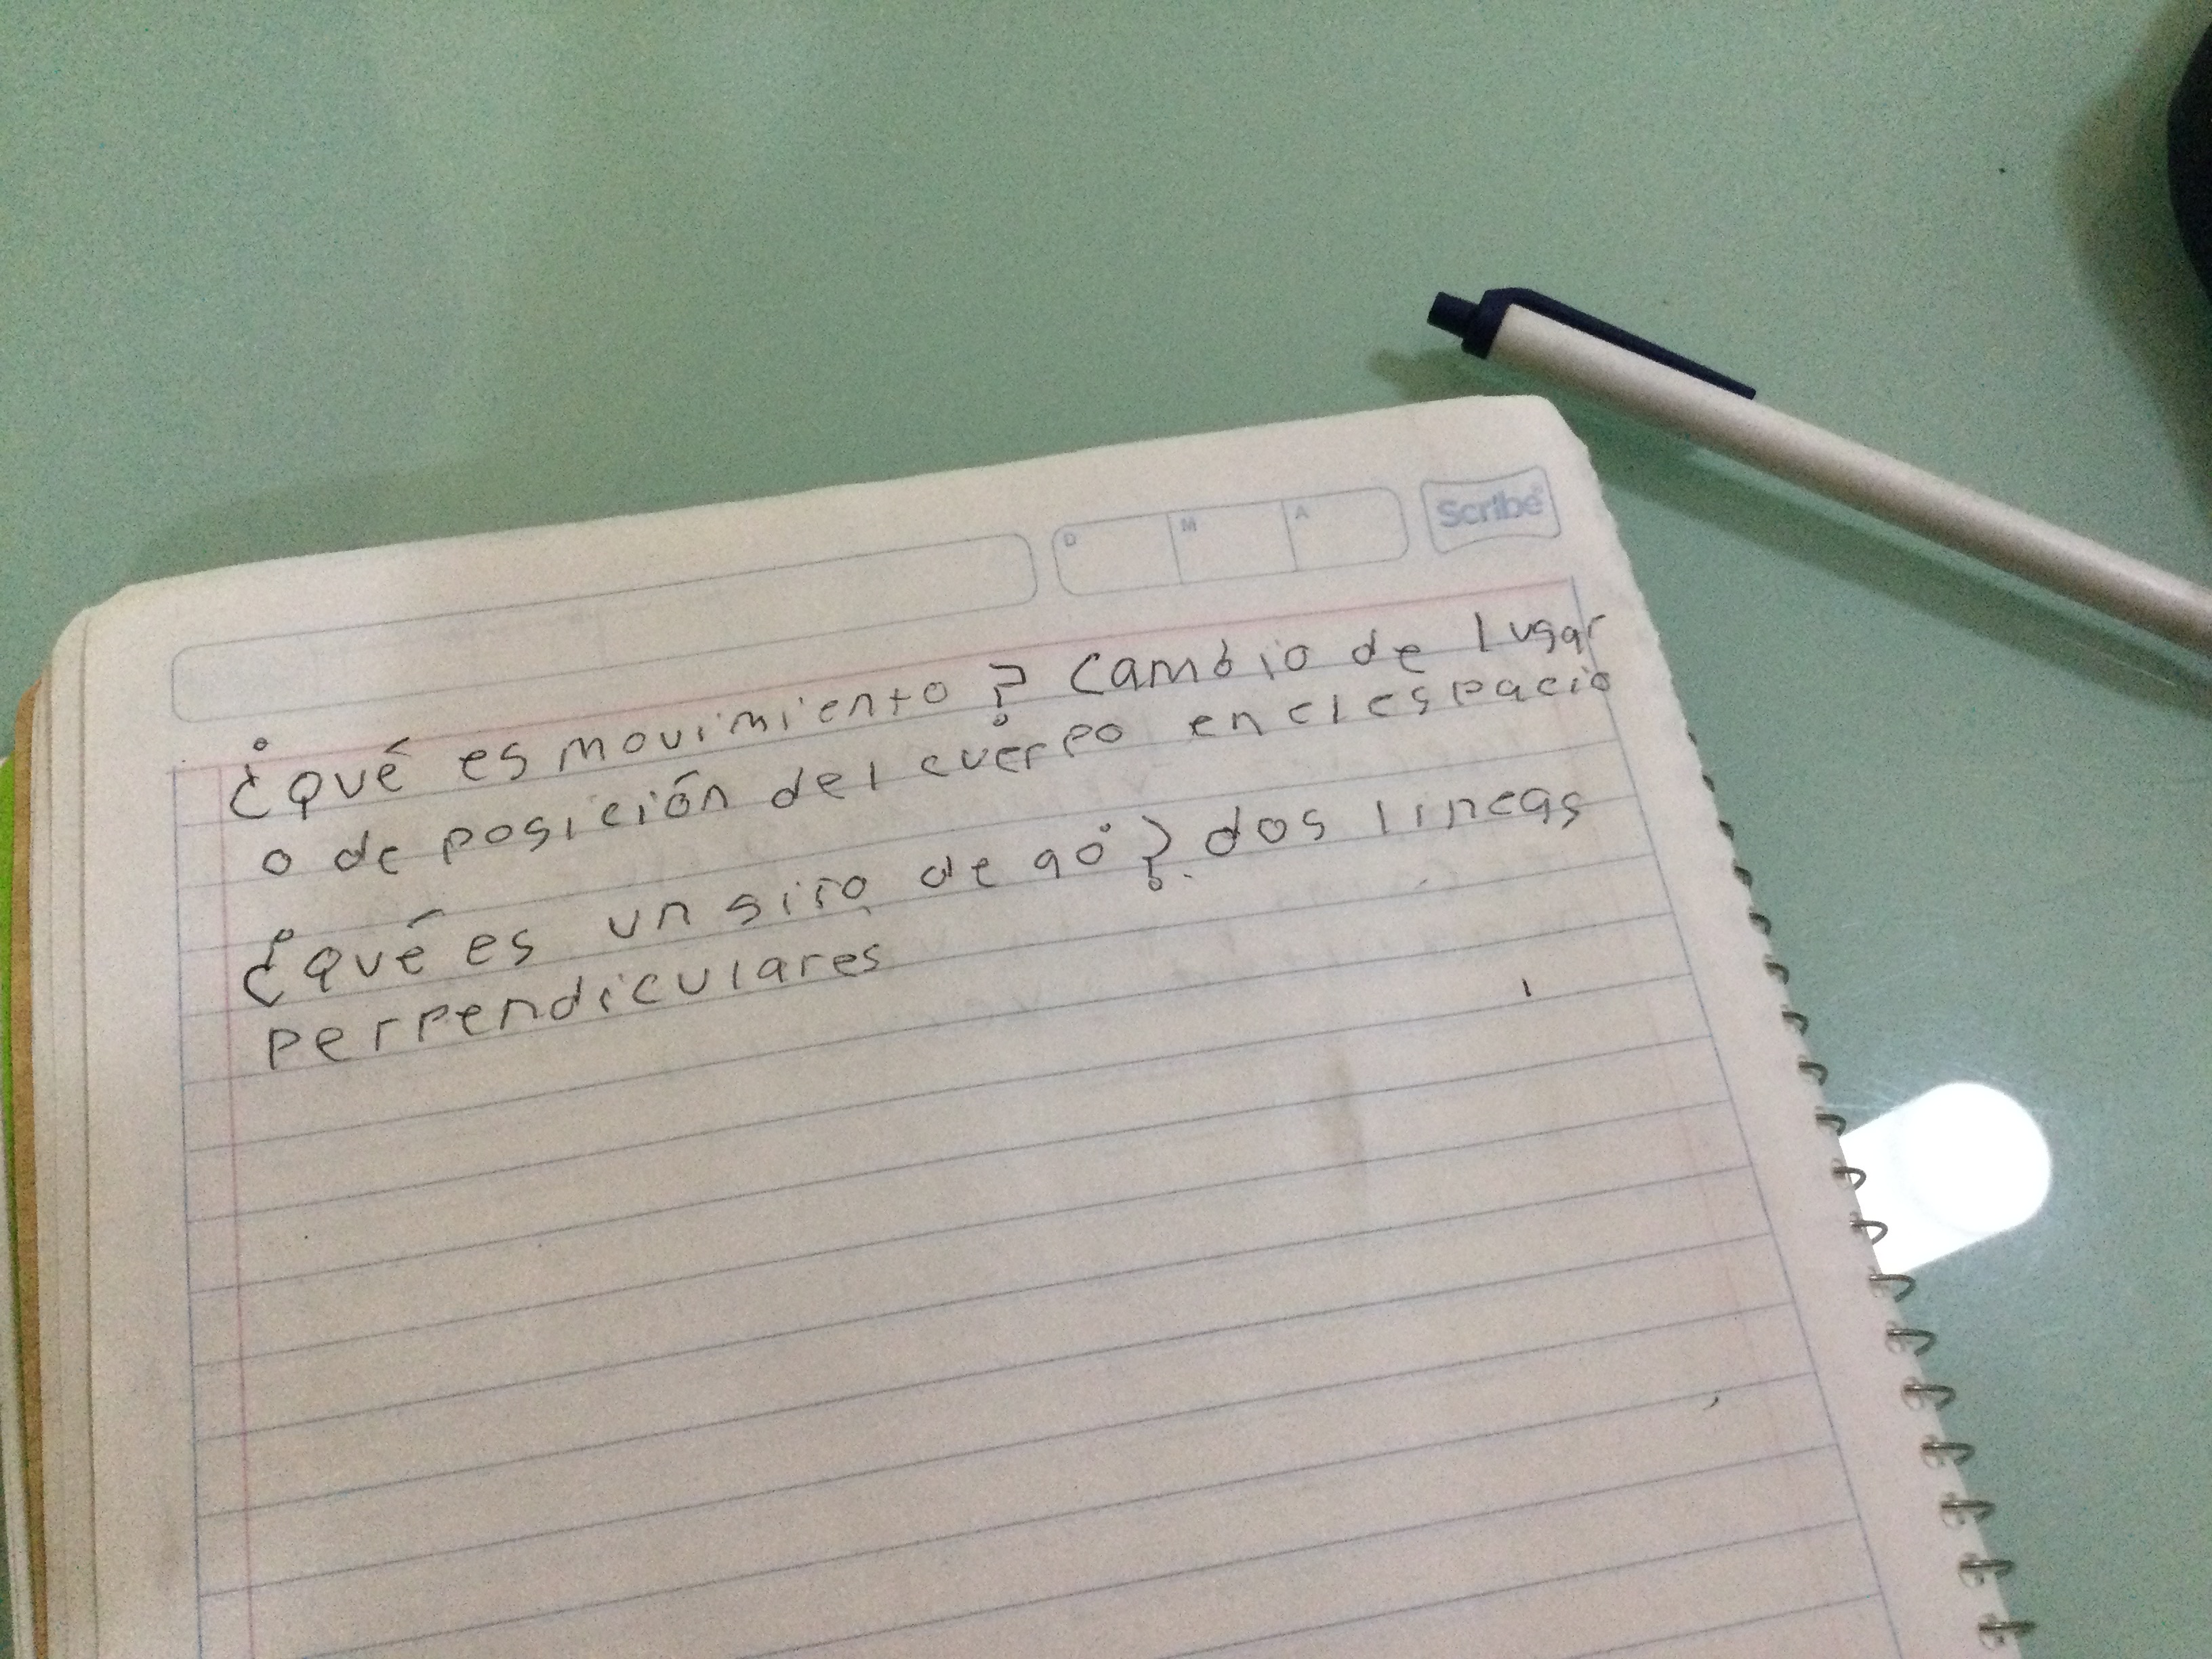 D M A Scribe
¿Qué es movimiento? Cambio de lugar
o de posición del cuerpo en el espacio
¿Qué es un giro de 90°? dos lineas
perpendiculares